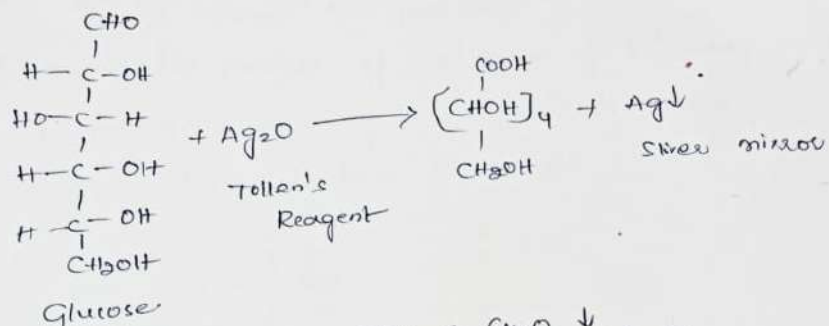 CHO
H — C — OH
HO — C — H
H — C — OH
H — C — OH
CH2OH
Glucose
+ Ag2O ⟶
Tollen's
Reagent
COOH
(CHOH]4
CH2OH
+ Ag↓
Silver mirror